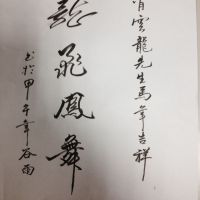 肖雲龍先生馬年吉祥
龍飛鳳舞
書於甲午年谷雨